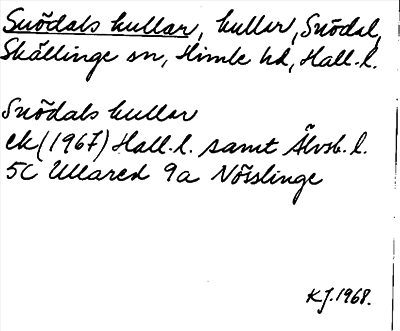 Snödals kullar, kullar, Snödal,
Skällinge sn, Himle hd, Hall. l.
Snödals kullar
ek (1967) Hall. l. samt Älvsb. l.
5C Ullared 9a Nösslinge
KJ. 1968.